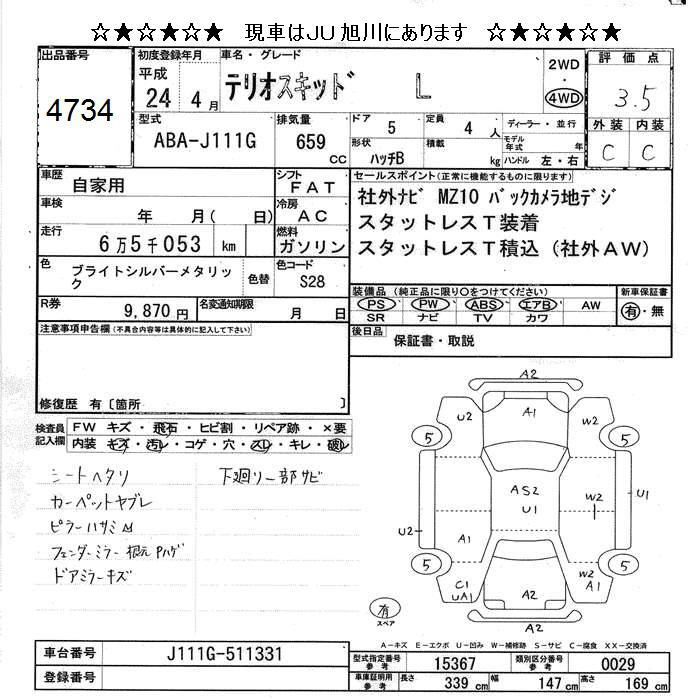 ☆★☆★☆★ 現車はJU旭川にあります ☆★☆★☆★
出品番号
4734
初度登録年月
平成
24 4月
車名・グレード
テリオスキッド L
2WD
・
4WD
評価点
3.5
外装 内装
C C
型式
ABA-J111G
排気量
659
CC
ドア
5
定員
4人
ディーラー・並行
形状
ハッチB
積載
kg
モデル年式
年
ハンドル 左・右
車歴
自家用
シフト
FAT
車検
年 月( 日)
冷房
AC
走行
6万5千053 km
燃料
ガソリン
色
ブライトシルバーメタリック
色替
色コード
S28
R券
9,870円
名変通知期限
月 日
セールスポイント(正常に機能するものに限ります)
社外ナビ MZ10 バックカメラ地デジ
スタットレスT装着
スタットレスT積込(社外AW)
装備品 (純正品に限り○をつけてください)
PS・PW・ABS・エアB・AW
SR ナビ TV カワ
新車保証書
有・無
後日品
保証書・取説
注意事項申告欄(不具合内容等は具体的に記入して下さい)
修復歴 有〔箇所 〕
検査員
記入欄
FW キズ・飛石・ヒビ割・リペア跡・×要
内装 キズ・汚レ・コゲ・穴・スレ・キレ・破レ
シートヘタリ
カーペットヤブレ
ピラーハサミ凹
フェンダーミラー根元Pハゲ
ドアミラーキズ
下廻り一部サビ
A2
A1
U2
W2
5
5
AS2
U1
W2
U1
U2
A1
5
5
C1
UA1
A2
W2
A1
A2
有
スペア
A-キズ E-エクボ U-凹み W-補修跡 S-サビ C-腐食 XX-交換済
車台番号
J111G-511331
登録番号
型式指定番号
参考
15367
類別区分番号
参考
0029
車庫証明用
参考
長さ
339cm
幅
147cm
高さ
169cm